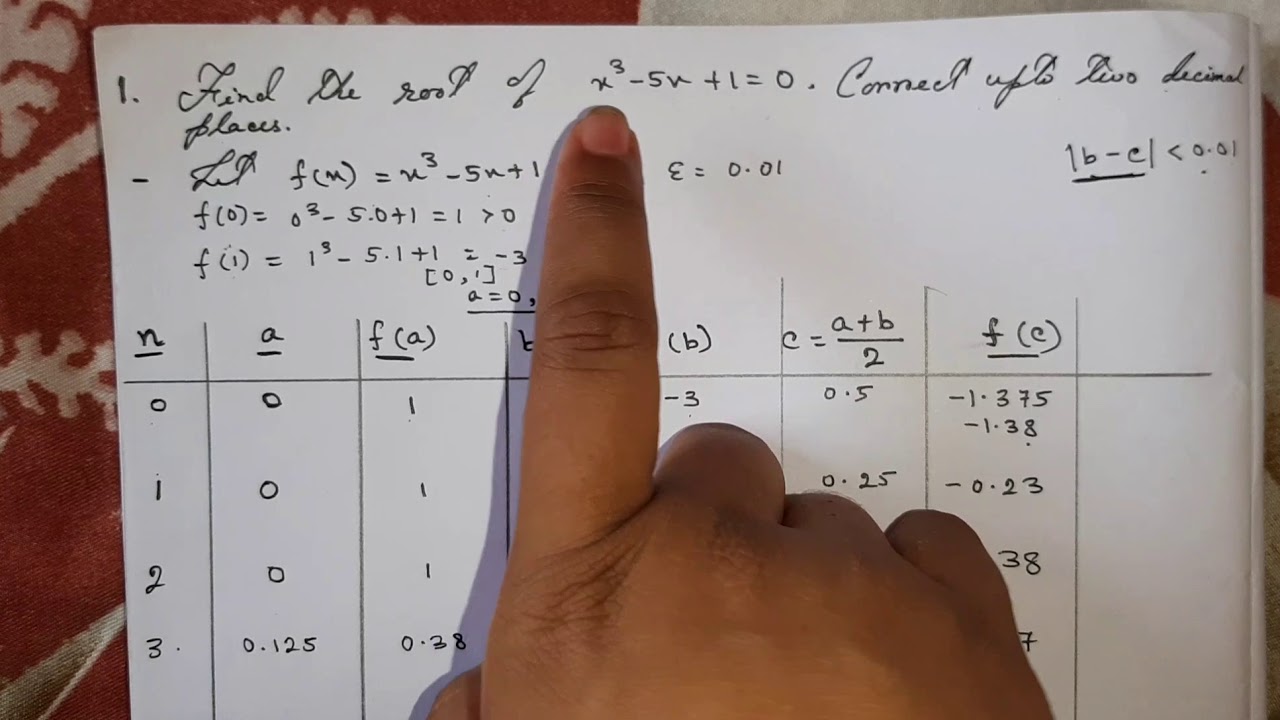 1. Find the root of x³-5x+1=0. Correct upto two decimal
places.
- Let f(x) = x³-5x+1 ε= 0.01 |b-c| < 0.01
f(0)= 0³- 5.0+1 = 1 >0
f(1) = 1³- 5.1+1 = -3
[0,1]
a=0,
n a f(a) b (b) c = a+b/2 f(c)
0 0 1 -3 0.5 -1.375
-1.38
1 0 1 0.25 -0.23
2 0 1 38
3. 0.125 0.38 7